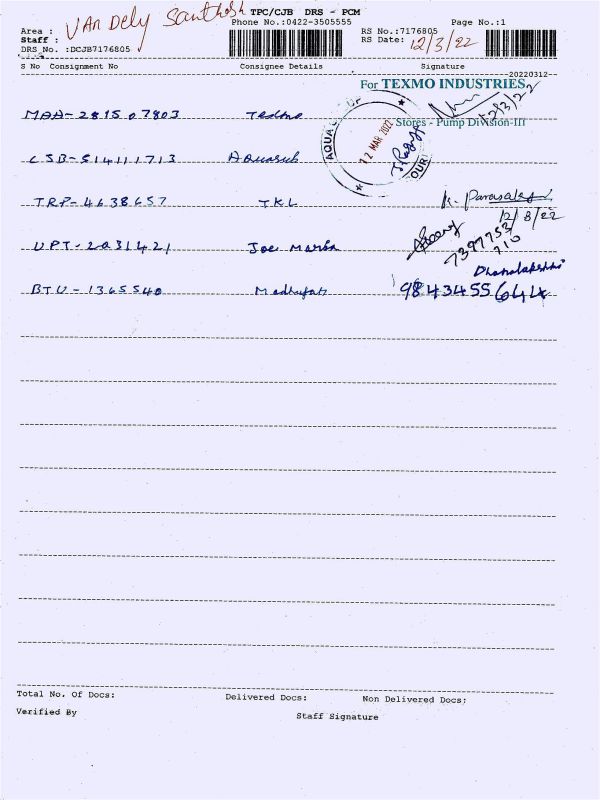 VAN DELY Santhosh
TPC/CJB DRS - PCM
Area :
Phone No.:0422-3505555
Page No.:1
Staff :
RS No.:7176805
DRS No. :DCJB7176805
RS Date: 12/3/22
S No Consignment No Consignee Details Signature
--20220312--
For TEXMO INDUSTRIES
12/3/22
MAA-281507803
Stores - Pump Division-III
AQUA
12 MAR 2022
OUR
CSB-514111713 Aquasub
TRP-4638657 TKL
12/3/22
UPT-2031421
7397753
710
Dhanalakshmi
BTU-1365540
9843455644
Total No. Of Docs: Delivered Docs: Non Delivered Docs:
Verified By Staff Signature